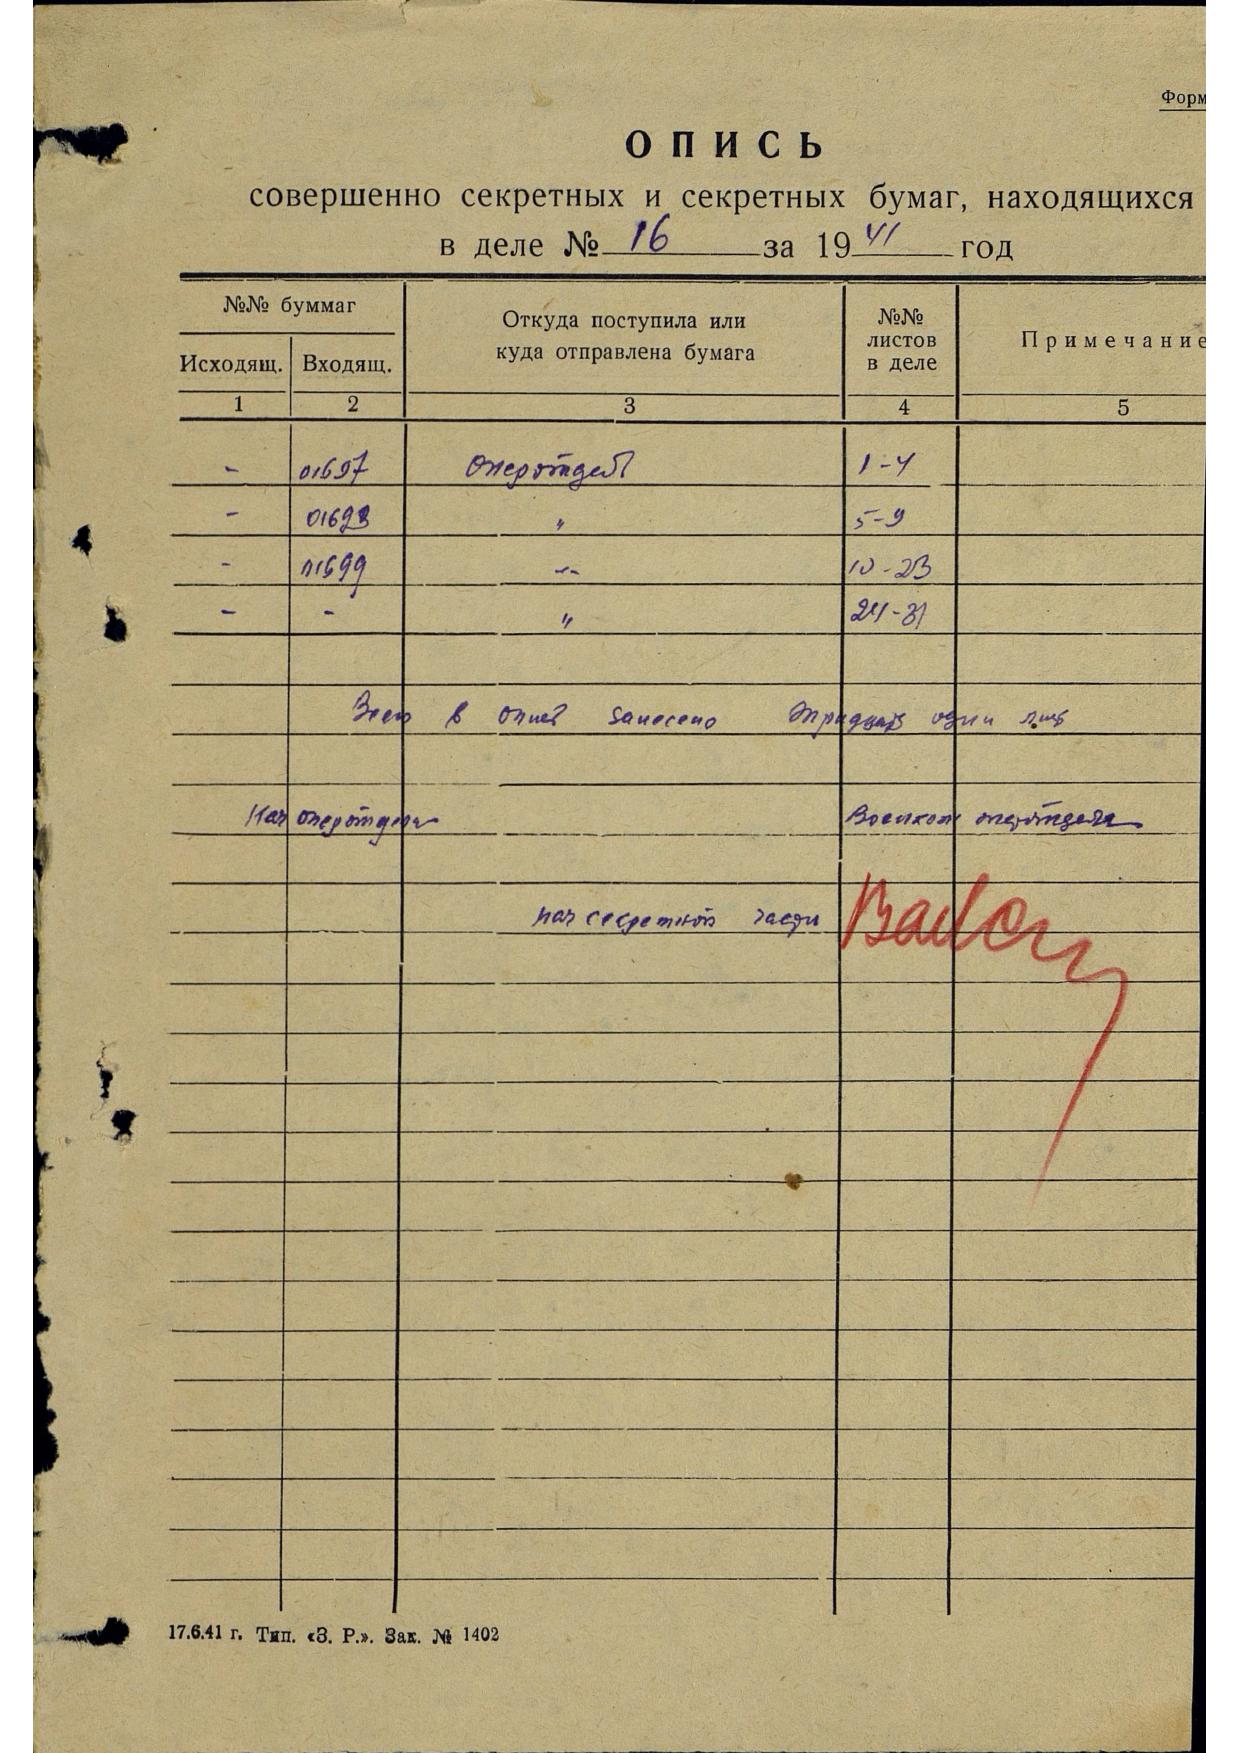 Форм
ОПИСЬ
совершенно секретных и секретных бумаг, находящихся
в деле № 16 за 1941 год
№№ буммаг
Откуда поступила или куда отправлена бумага
№№ листов в деле
Примечание
Исходящ. Входящ.
1 2 3 4 5
- 01697 Оперотдел 1-4
- 01698 " 5-9
- 01699 -"- 10-23
- - " 24-31
Всего в опись занесено тридцать один лист
Нач оперотдела Военком оперотдела
нач секретной части
17.6.41 г. Тип. «З. Р.». Зак. № 1402